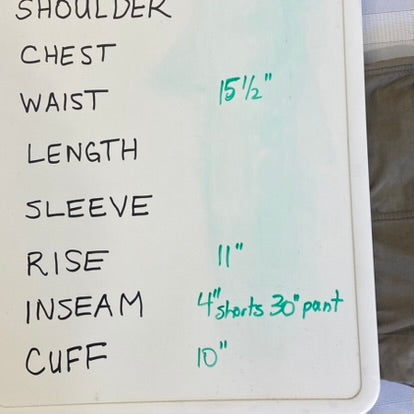 SHOULDER
CHEST
WAIST 15 1/2"
LENGTH
SLEEVE
RISE 11"
INSEAM 4" shorts 30" pant
CUFF 10"